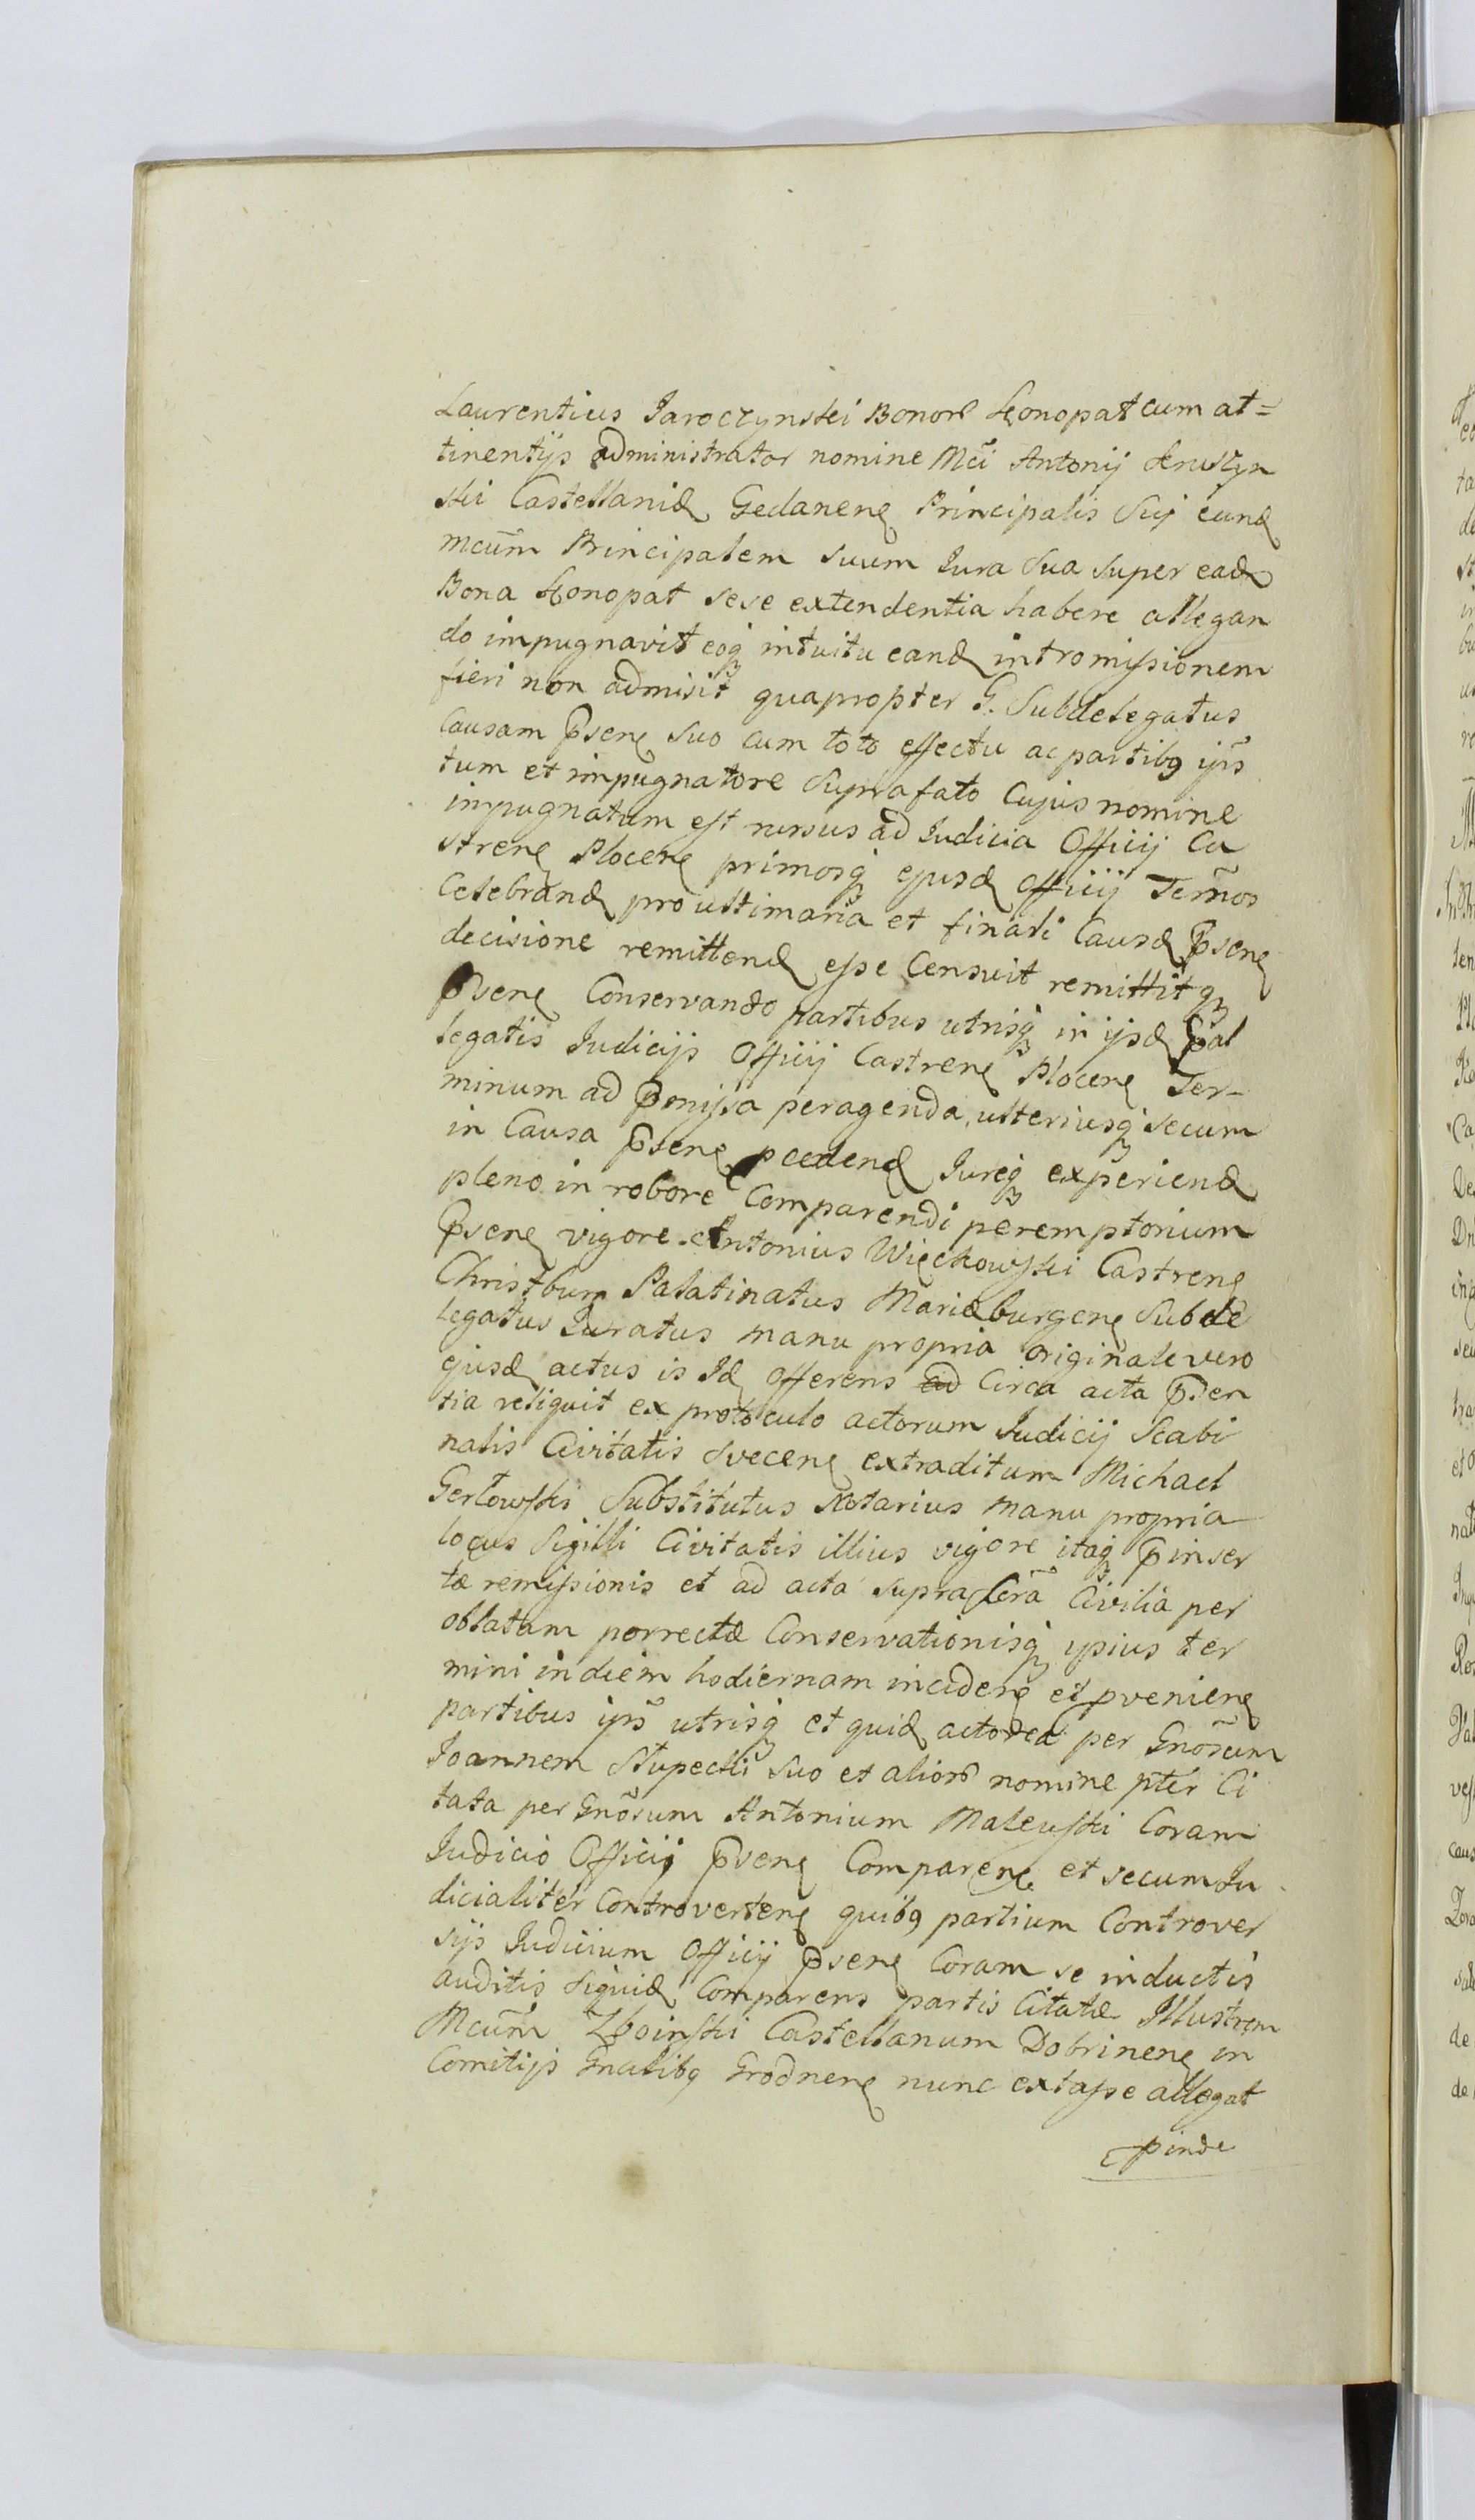 Laurentius Jaroczynski Bonor Konopat cum at=
tinentijs administrator nomine Mci Antonij Kruszyn
ski Castellanid Gedanen Principalis Sui eund
mcum Principalem suum Jura Sua super ead
Bona Konopat sese extendentia habere allegan
do impugnavit eoq intuitu eand intromissionem
fieri non admisit quapropter G. Subdelegatus
Causam Psen Suo cum toto effectu ac partibq ijs
tum et impugnatore Suprafato Cujus nomine
impugnatum est rursus ad Judicia Officij Ca
stren Plocen primosq ejusd Officij Termos
Celebrand pro ultimaria et finali Causæ Psen
decisione remittend esse Censuit remittitq
Psen Conservando partibus utrisq in ijsd Pal
legatis Judicijs Officij Castren Plocen Ter-
minum ad Pmissa peragenda, ulteriusq secum
in Causa Psen pcedend Jureq experiend
pleno in robore Comparendi peremptorium
Psen vigore. Antonius Więckowski Castren
Christburg Palatinatus Mariæburgen Subde
legatus Juratus manu propria Originale vero
ejusd actus is Id Offerens ad Circa acta Psen
tia reliquit ex protoculo actorum Judicij Scabi
nalis Civitatis Svecen extraditum Michael
Gerlowski Substitutus Notarius manu propria
locus Sigilli Civitatis illius vigore itaq Pinser
tæ remissionis et ad acta supra Civilia per
oblatam porrectæ Conservationisq ipsius ter
mini in diem hodiernam inciden et pvenien
partibus ijs utrisq et quid actorea per Gnosum
Joannem Słupecki suo et alior nomine pter Ci
tata per Gnosum Antonium Malewski Coram
Judicio Officij Psen Comparen et secum Ju
dicialiter Controverten quibq partium Controver
sijs Judicium Officij Psen Coram se inductis
auditis siquid Comparens partis Citatæ Illustrem
Mcum Zboinski Castellanum Dobrinen in
Comitijs Gnalibq Grodnen nunc extasse allegat
pinde